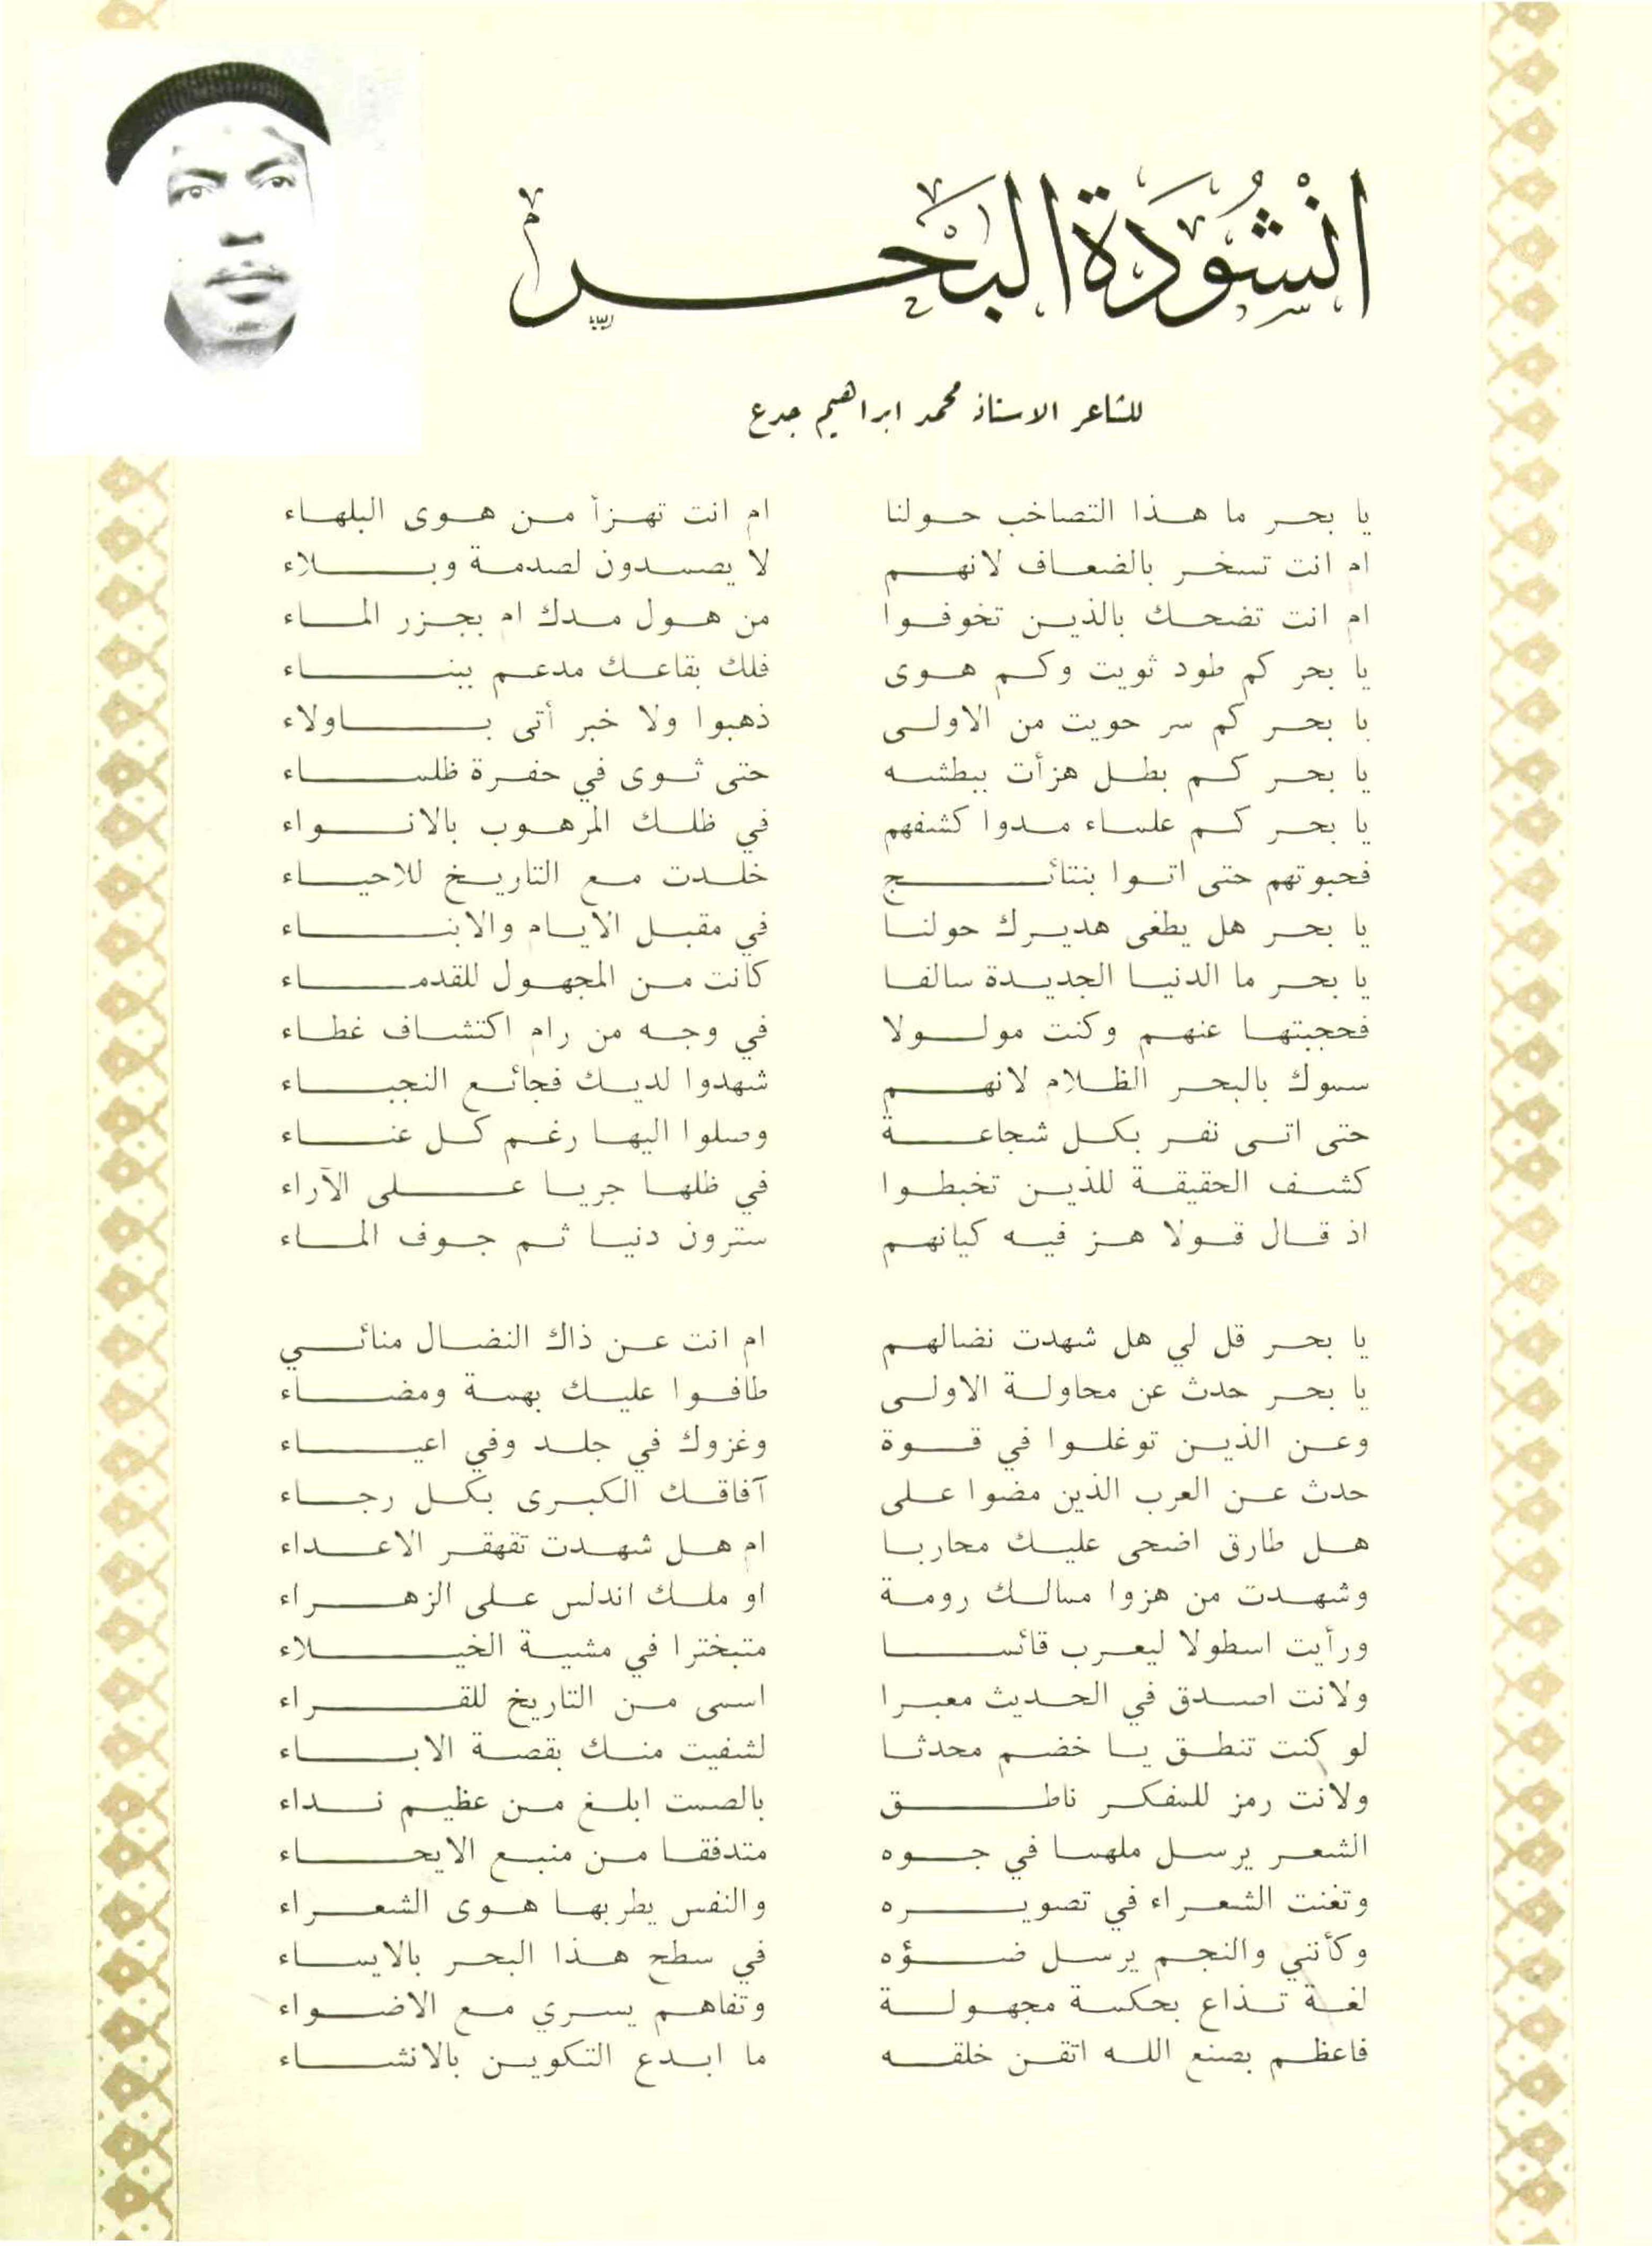 انْشُودَة البَحْر
للشاعر الاستاذ محمد ابراهيم جدع
يا بحر ما هذا التصاخب حولنا ام انت تهزأ من هوى البلهاء
ام انت تسخر بالضعاف لانهم لا يصمدون لصدمة وبلاء
ام انت تضحك بالذين تخوفوا من هول مدك ام بجزر الماء
يا بحر كم طود ثويت وكم هوى فلك بقاعك مدعم ببناء
يا بحر كم سر حويت من الاولى ذهبوا ولا خبر أتى باولاء
يا بحر كم بطل هزأت ببطشه حتى ثوى في حفرة ظلماء
يا بحر كم علماء مدوا كشفهم في ظلك المرهوب بالانواء
فحبوتهم حتى اتوا بنتائج خلدت مع التاريخ للاحياء
يا بحر هل يطغى هديرك حولنا في مقبل الايام والابناء
يا بحر ما الدنيا الجديدة سالفا كانت من المجهول للقدماء
فحجبتها عنهم وكنت مولولا في وجه من رام اكتشاف غطاء
سموك بالبحر الظلام لانهم شهدوا لديك فجائع النجباء
حتى اتى نفر بكل شجاعة وصلوا اليها رغم كل عناء
كشف الحقيقة للذين تخبطوا في ظلها جريا على الآراء
اذ قال قولا هز فيه كيانهم سترون دنيا ثم جوف الماء
يا بحر قل لي هل شهدت نضالهم ام انت عن ذاك النضال منائي
يا بحر حدث عن محاولة الاولى طافوا عليك بهمة ومضاء
وعن الذين توغلوا في قوة وغزوك في جلد وفي اعياء
حدث عن العرب الذين مضوا على آفاقك الكبرى بكل رجاء
هل طارق اضحى عليك محاربا ام هل شهدت تقهقر الاعداء
وشهدت من هزوا مسالك رومة او ملك اندلس على الزهراء
ورأيت اسطولا ليعرب قائما متبخترا في مشية الخيلاء
ولانت اصدق في الحديث معبرا اسمى من التاريخ للقراء
لو كنت تنطق يا خضم محدثا لشفيت منك بقصة الاباء
ولانت رمز للمفكر ناطق بالصمت ابلغ من عظيم نداء
الشعر يرسل ملهما في جوه متدفقا من منبع الايحاء
وتغنت الشعراء في تصويره والنفس يطربها هوى الشعراء
وكأنني والنجم يرسل ضوؤه في سطح هذا البحر بالايماء
لغة تذاع بحكمة مجهولة وتفاهم يسري مع الاضواء
فاعظم بصنع الله اتقن خلقه ما ابدع التكوين بالانشاء